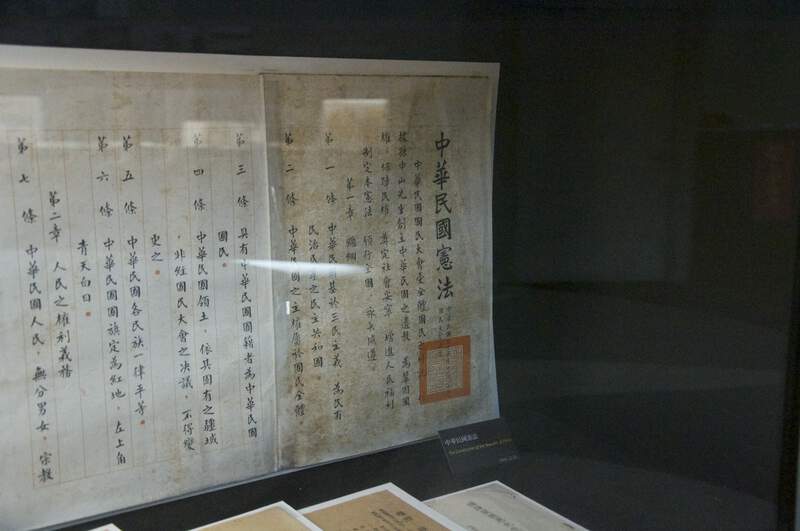 中華民國憲法
中華民國國民大會受全體國民之
據孫中山先生創立中華民國之遺教，為鞏固國
權，保障民權，奠定社會安寧，增進人民福利
制定本憲法，頒行全國，永矢咸遵。
第一章　總綱
第一條　中華民國基於三民主義，為民有
民治民享之民主共和國。
第二條　中華民國之主權屬於國民全體。
第三條　具有中華民國國籍者為中華民國
國民。
第四條　中華民國領土，依其固有之疆域
，非經國民大會之決議，不得變
更之。
第五條　中華民國各民族一律平等。
第六條　中華民國國旗定為紅地，左上角
青天白日。
第二章　人民之權利義務
第七條　中華民國人民，無分男女，宗教
中華民國憲法
The Constitution of the Republic of